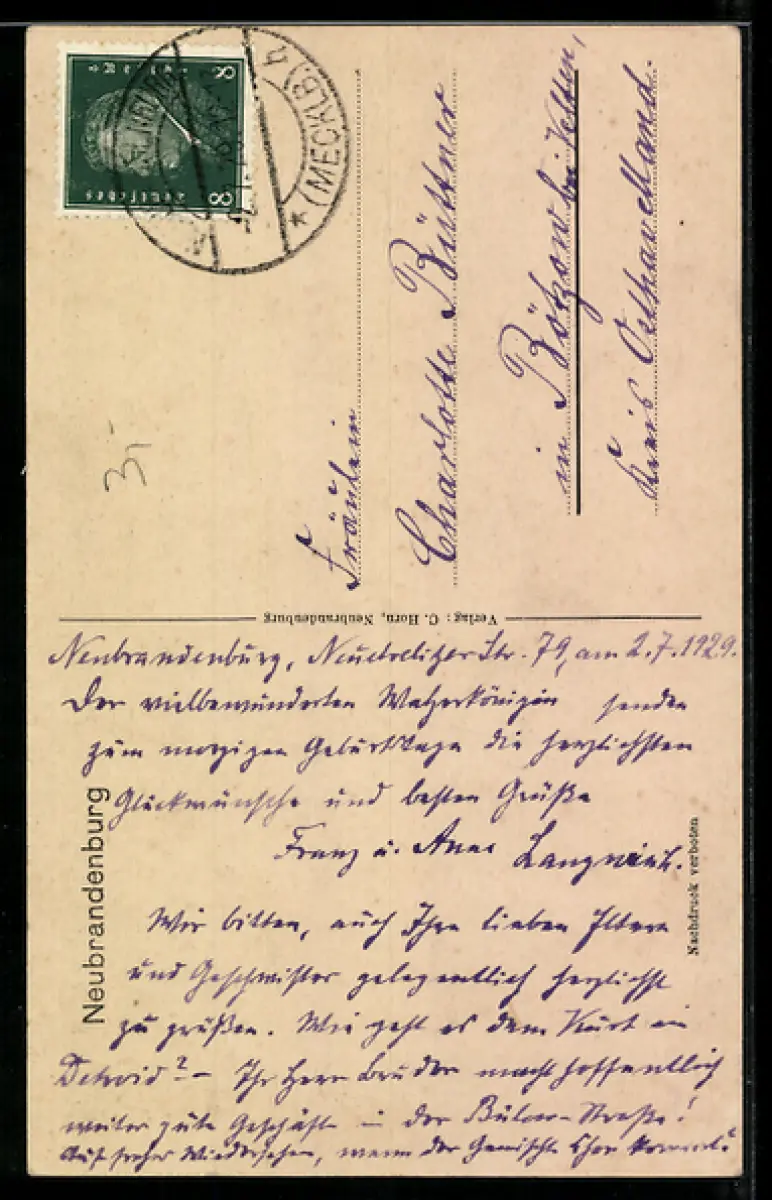 8 8
Deutsches
(MECKLB.) h
3,-
Fräulein
Charlotte Büttner
in Bötzow bei Velten,
Kreis Osthavelland.
Verlag: C. Horn, Neubrandenburg
Neubrandenburg, Neustrelitzer Str. 79, am 2.7.1929.
Der vielbewunderten Walzerkönigin senden
zum morgigen Geburtstage die herzlichsten
Glückwünsche und besten Grüße
Franz u. Anna
Wir bitten, auch Ihre lieben Eltern
und Geschwister gelegentlich herzlichst
zu grüßen. Wie geht es dem Kurt in
Detroid? – Ihr Herr Bruder macht hoffentlich
weiter gute Geschäfte in der Bülow-Straße!
Auf frohes Wiedersehen, wenn der Gemischte Chor kommt!
Neubrandenburg
Nachdruck verboten